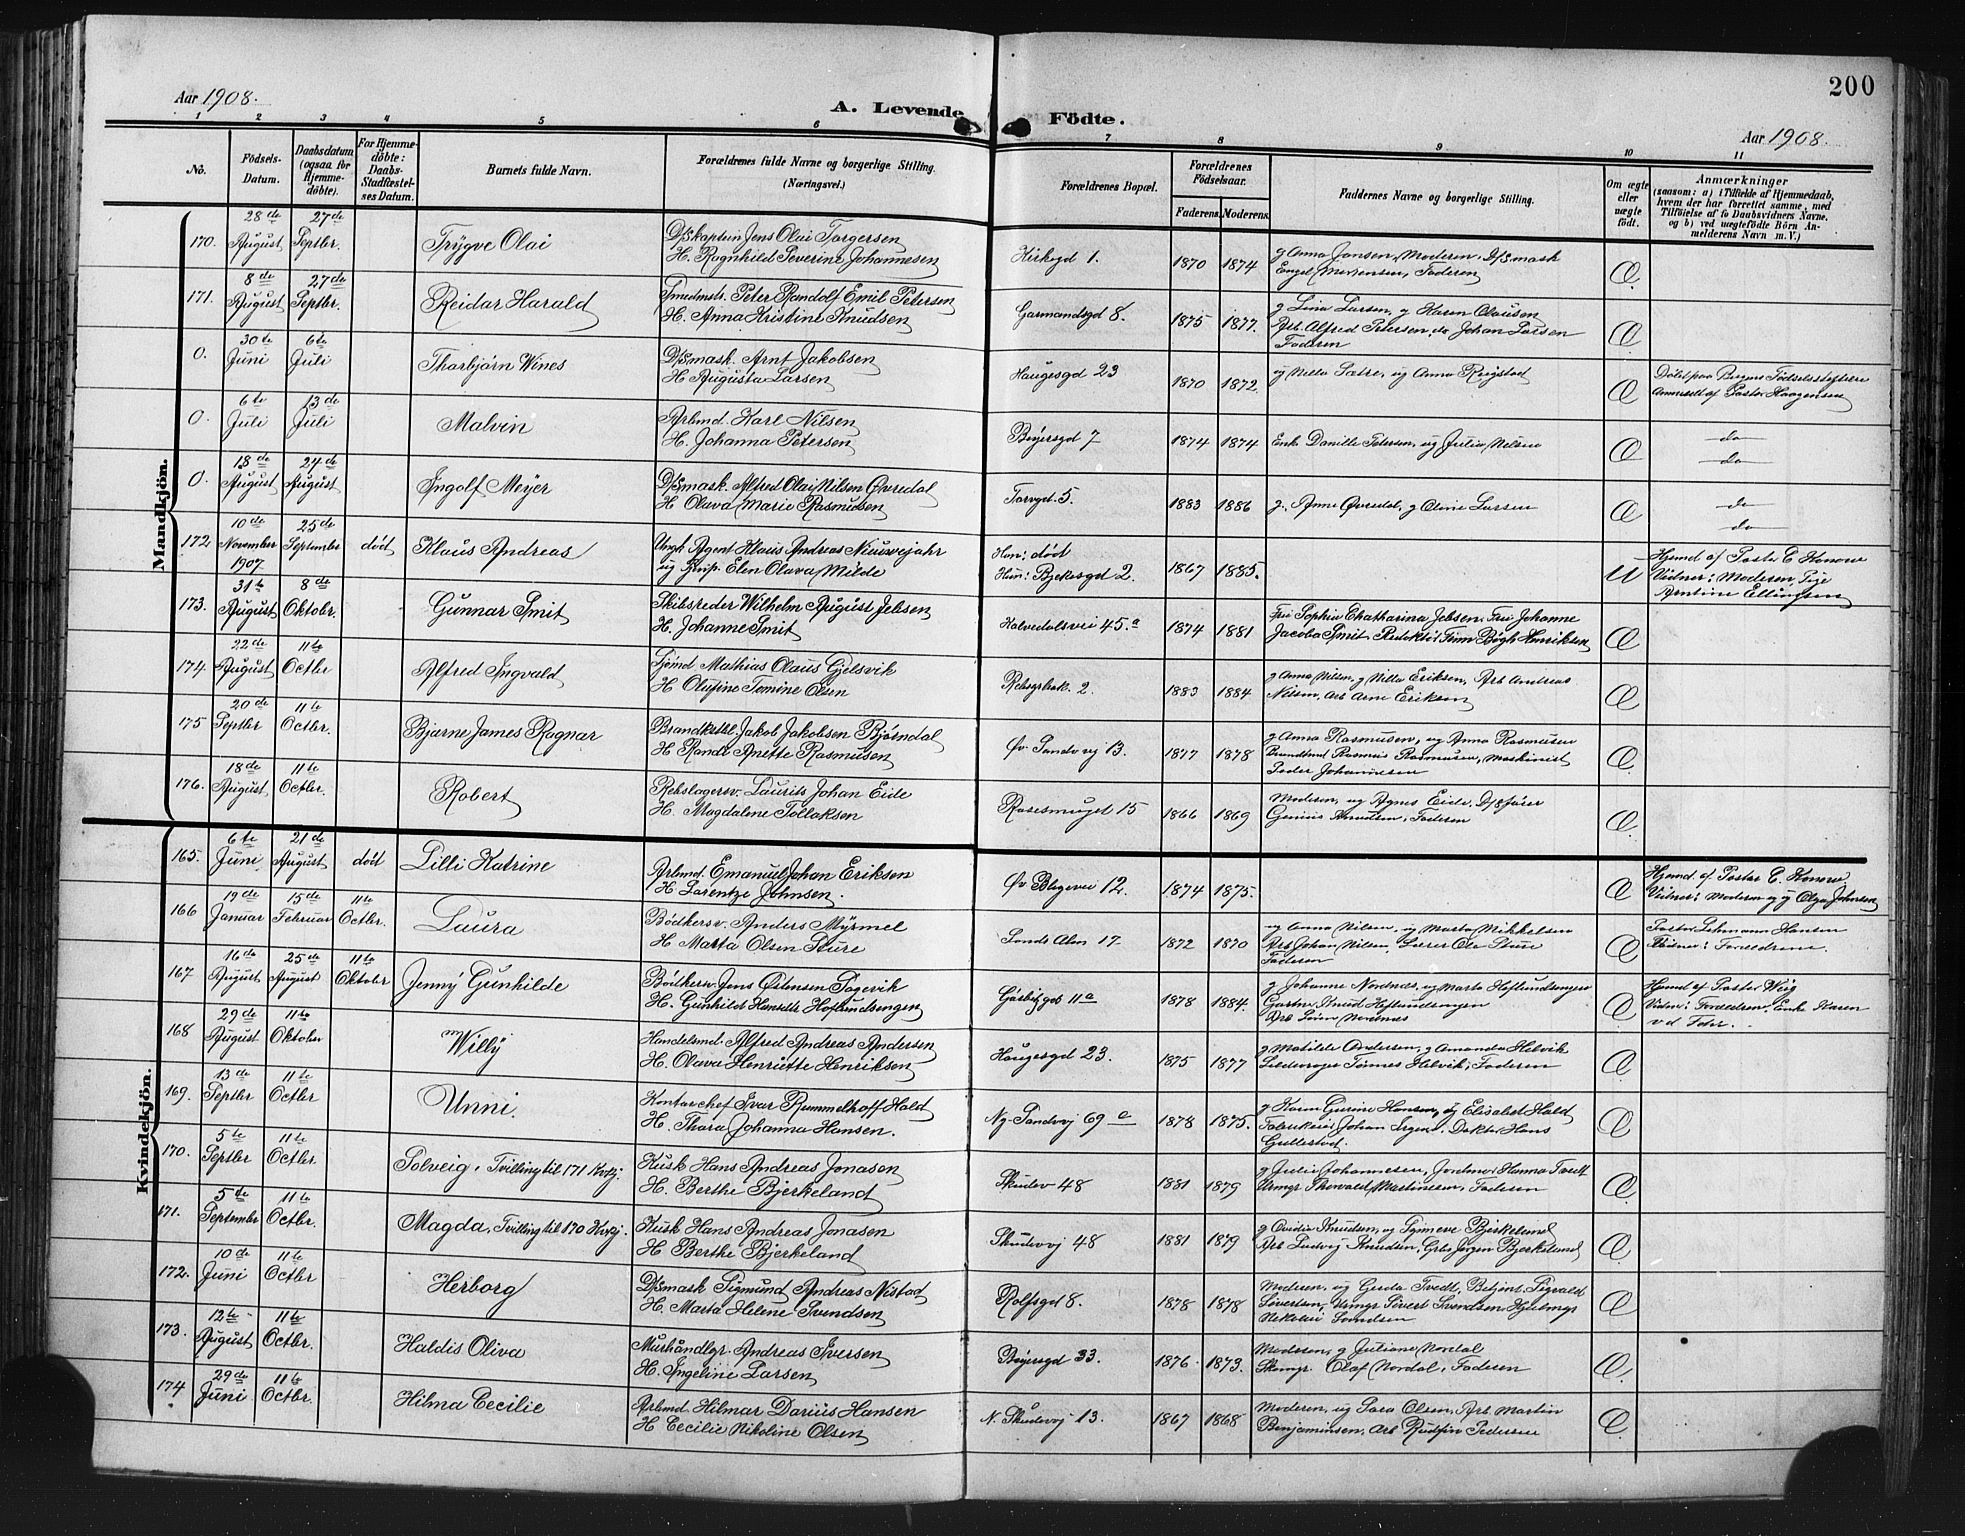 200
Aar 1908.
A. Levende Födte.
Aar 1908.
1 2 3 4 5 6 7 8 9 10 11
No.
Födsels-Datum.
Daabsdatum (ogsaa for Hjemme-döbte).
For Hjemme-döbte: Daabs-Stadfæstel-ses Datum.
Barnets fulde Navn.
Forældrenes fulde Navne og borgerlige Stilling. (Næringsvei.)
Forældrenes Bopæl.
Forældrenes Födselsaar.
Faderens. Moderens.
Faddernes Navne og borgerlige Stilling.
Om ægte eller uægte födt.
Anmærkninger
(saasom: a) i Tilfælde af Hjemmedaab, hvem der har forrettet samme, med Tilföielse af to Daabsvidners Navne. og b) ved uægtefödte Börn An-melderens Navn m. V.)
Mandkjön.
170. 28de August 27de Septbr. Trygve Olai D/Skaptein Jens Olai Torgersen H. Ragnhild Severine Johannesen Kirkegd 1. 1870 1874 g Anna Jansen, Moderen, D/Smask Engel Mortensen, Faderen Æ
171. 8de August 27de Septbr. Reidar Harald Smedmstr. Peter Randolf Emil Petersen H. Anna Kristine Knudsen Garmandsgd 8. 1875 1877. g Lina Larsen, g Karen Olausen Arb. Alfred Petersen, do Johan Larsen Faderen Æ
0. 30te Juni 6te Juli Thorbjørn Wines D/Smask. Arnt Jakobsen H Augusta Larsen Haugesgd 23 1870 1872. ug Nilla Sætre, ug Anna Rugstad Æ Døbt paa Bergens Fødselsstiftelse Anmeldt af Pastor Haagensen
0. 6te Juli 13de Juli Malvin Arbmd Karl Nilsen H. Johanna Petersen Bøjersgd 7 1874 1874 Enk. Danille Petersen, ug Julia Nilsen Æ do do
0. 18de August 24de August Ingolf Meyer D/Smask. Alfred Olai Nilsen Øvredal H Olava Marie Rasmussen Torvgd. 5. 1883 1886 g. Anne Øvredal, g Oline Larsen Æ do do
172 10de November 1907. 25de September døbt Klaus Andreas Ungk Agent Klaus Andreas Nieuwejahr ug Elen Olava Milde Han: død Hun: Bjekesgd 2. 1867 1885. U Hjemd af Pastor C Honore Vidner: Moderen, Pige Arntine Ellingsen
173. 31te August 8de Oktobr. Gunnar Smit Skibsreder Wilhelm August Jebsen H. Johanne Smit Kalvedalsvei 45.a 1874 1881 Fru Sophie Chatharina Jebsen, Fru Johanne Jacoba Smit Finn Bøgh Henriksen Æ
174. 22de August 11te Octbr Alfred Ingvald Sjømd Mathias Olaus Gjelsvik H Olufine Tomine Olsen Rebsgsbak. 2. 1883 1884 g Anna Nilsen, g Nilla Eriksen, Arb Andreas Nilsen, Arb Arne Eriksen Æ
175 20de Septbr 11te Octbr. Bjarne James Ragnar Brandkstbl. Jakob Jakobsen Bjørndal H Randi Anette Rasmussen Øv Sandvvj 13. 1877 1878 g Anna Rasmussen, ug Anna Rasmussen Brandkstd Rasmus Rasmussen, Maskinist Peder Johannesen Æ
176. 18de August 11te Octbr. Robert Rebslagersv. Laurits Johan Eide H. Magdalene Tollaksen Rosesmuget 15 1866 1869 Moderen, ug Agnes Eide, D/Sfører Knudsen, Faderen Æ
Kvindekjön.
165. 6te Juni 21de August døbt Lilli Katrine Arbmd. Emanuel Johan Eriksen H Larentze Johnsen. Øv Blegevei 12. 1874 1875. Æ Hjemd af Pastor C. Honore Vidner: Moderen og g Olga Johnsen
166 19de Januar 15de Februar 11te Octbr. Laura Bødkersv. Anders Myrmel H Marta Olsen Sture Sands Alm 17 1872 1870 ug Anna Nilsen, ug Marta Mikkelsen Arb Johan Nilsen, Lærer Ole Sture Faderen Æ Pastor Lehmann Hansen Vidner: Forældrene.
167 16de August 25de August 11te Oktober Jenny Gunhilde Bødkersv. Jens Østensen Sagevik H. Gunhild Hansdtr. Hoflundsengen Gåsbjggds 11a 1878 1884. g Johanne Nordnæs, ug Marta Heftundsengen Gartner Knud Heftundsengen Arb Søren Nordnæs Æ Hjemd af Pastor Weig Vidner: Forældrene, Enke Karen v. d. Fehr.
168 29de August 11te Oktober Willy Handelsmd. Alfred Andreas Andersen H. Olava Henriette Henriksen Haugesgd 23. 1875 1877 g Matilde Andersen, g Amanda Helvik Tønnes Helvik, Faderen Æ
169. 13de Septbr 11te Octbr Unni. Kontorchef Ivar Rummelhoff Hald H. Thora Johanna Hansen. Ny-Sandvvj 69 c 1878 1875. g Karen Gurine Hansen, ug Elisabet Hald Johan Irgens, Doktor Hans Gullestad. Æ
170. 5te Septbr 11te Octbr. Solveig, Tvilling til 171 Kvkj. Kusk Hans Andreas Jonasen H. Berthe Bjerkeland Skudev 48 1881 1879 g Julie Johannesen, Jordmor Hanna Tvedt Urmgr Thorvald Martinesen, Faderen Æ
171. 5te September 11te Octbr. Magda, Tvilling til 170 Kvkj. Kusk Hans Andreas Jonasen H Berthe Bjerkeland Skudevvj 48 1881 1879 g Ovidia Knudsen, ug Synneve Bjerkeland Arb Ludvig Knudsen, Grbr Jørgen Bjerkeland Æ
172. 10de Juni 11te Octbr Herborg D/Smask Sigmund Andreas Nistad H. Marta Helene Svendsen Rolfsgd 8. 1878 1878 Moderen, ug Gerda Tvedt, Betjent Sigvald Sivertsen, Urmgr Sivert Svendsen Hjulmgr Nikolai Svendsen Æ
173. 12te August 11te Octbr. Haldis Oliva Murhåndlgr. Andreas Iversen H. Ingeline Larsen Bøjersgd 33. 1876 1873. Moderen, g Juliane Nordal Skomgr. Olaf Nordal, Faderen Æ
174 29de Juni 11te Octbr. Hilma Cecilie Arbmd. Hilmar Darius Hansen H Cecilie Nikoline Olsen N. Skudevvj 13. 1867 1868 Moderen, ug Sara Olsen, Arb Martin Benjaminsen, Arb Rudfin Pedersen Æ